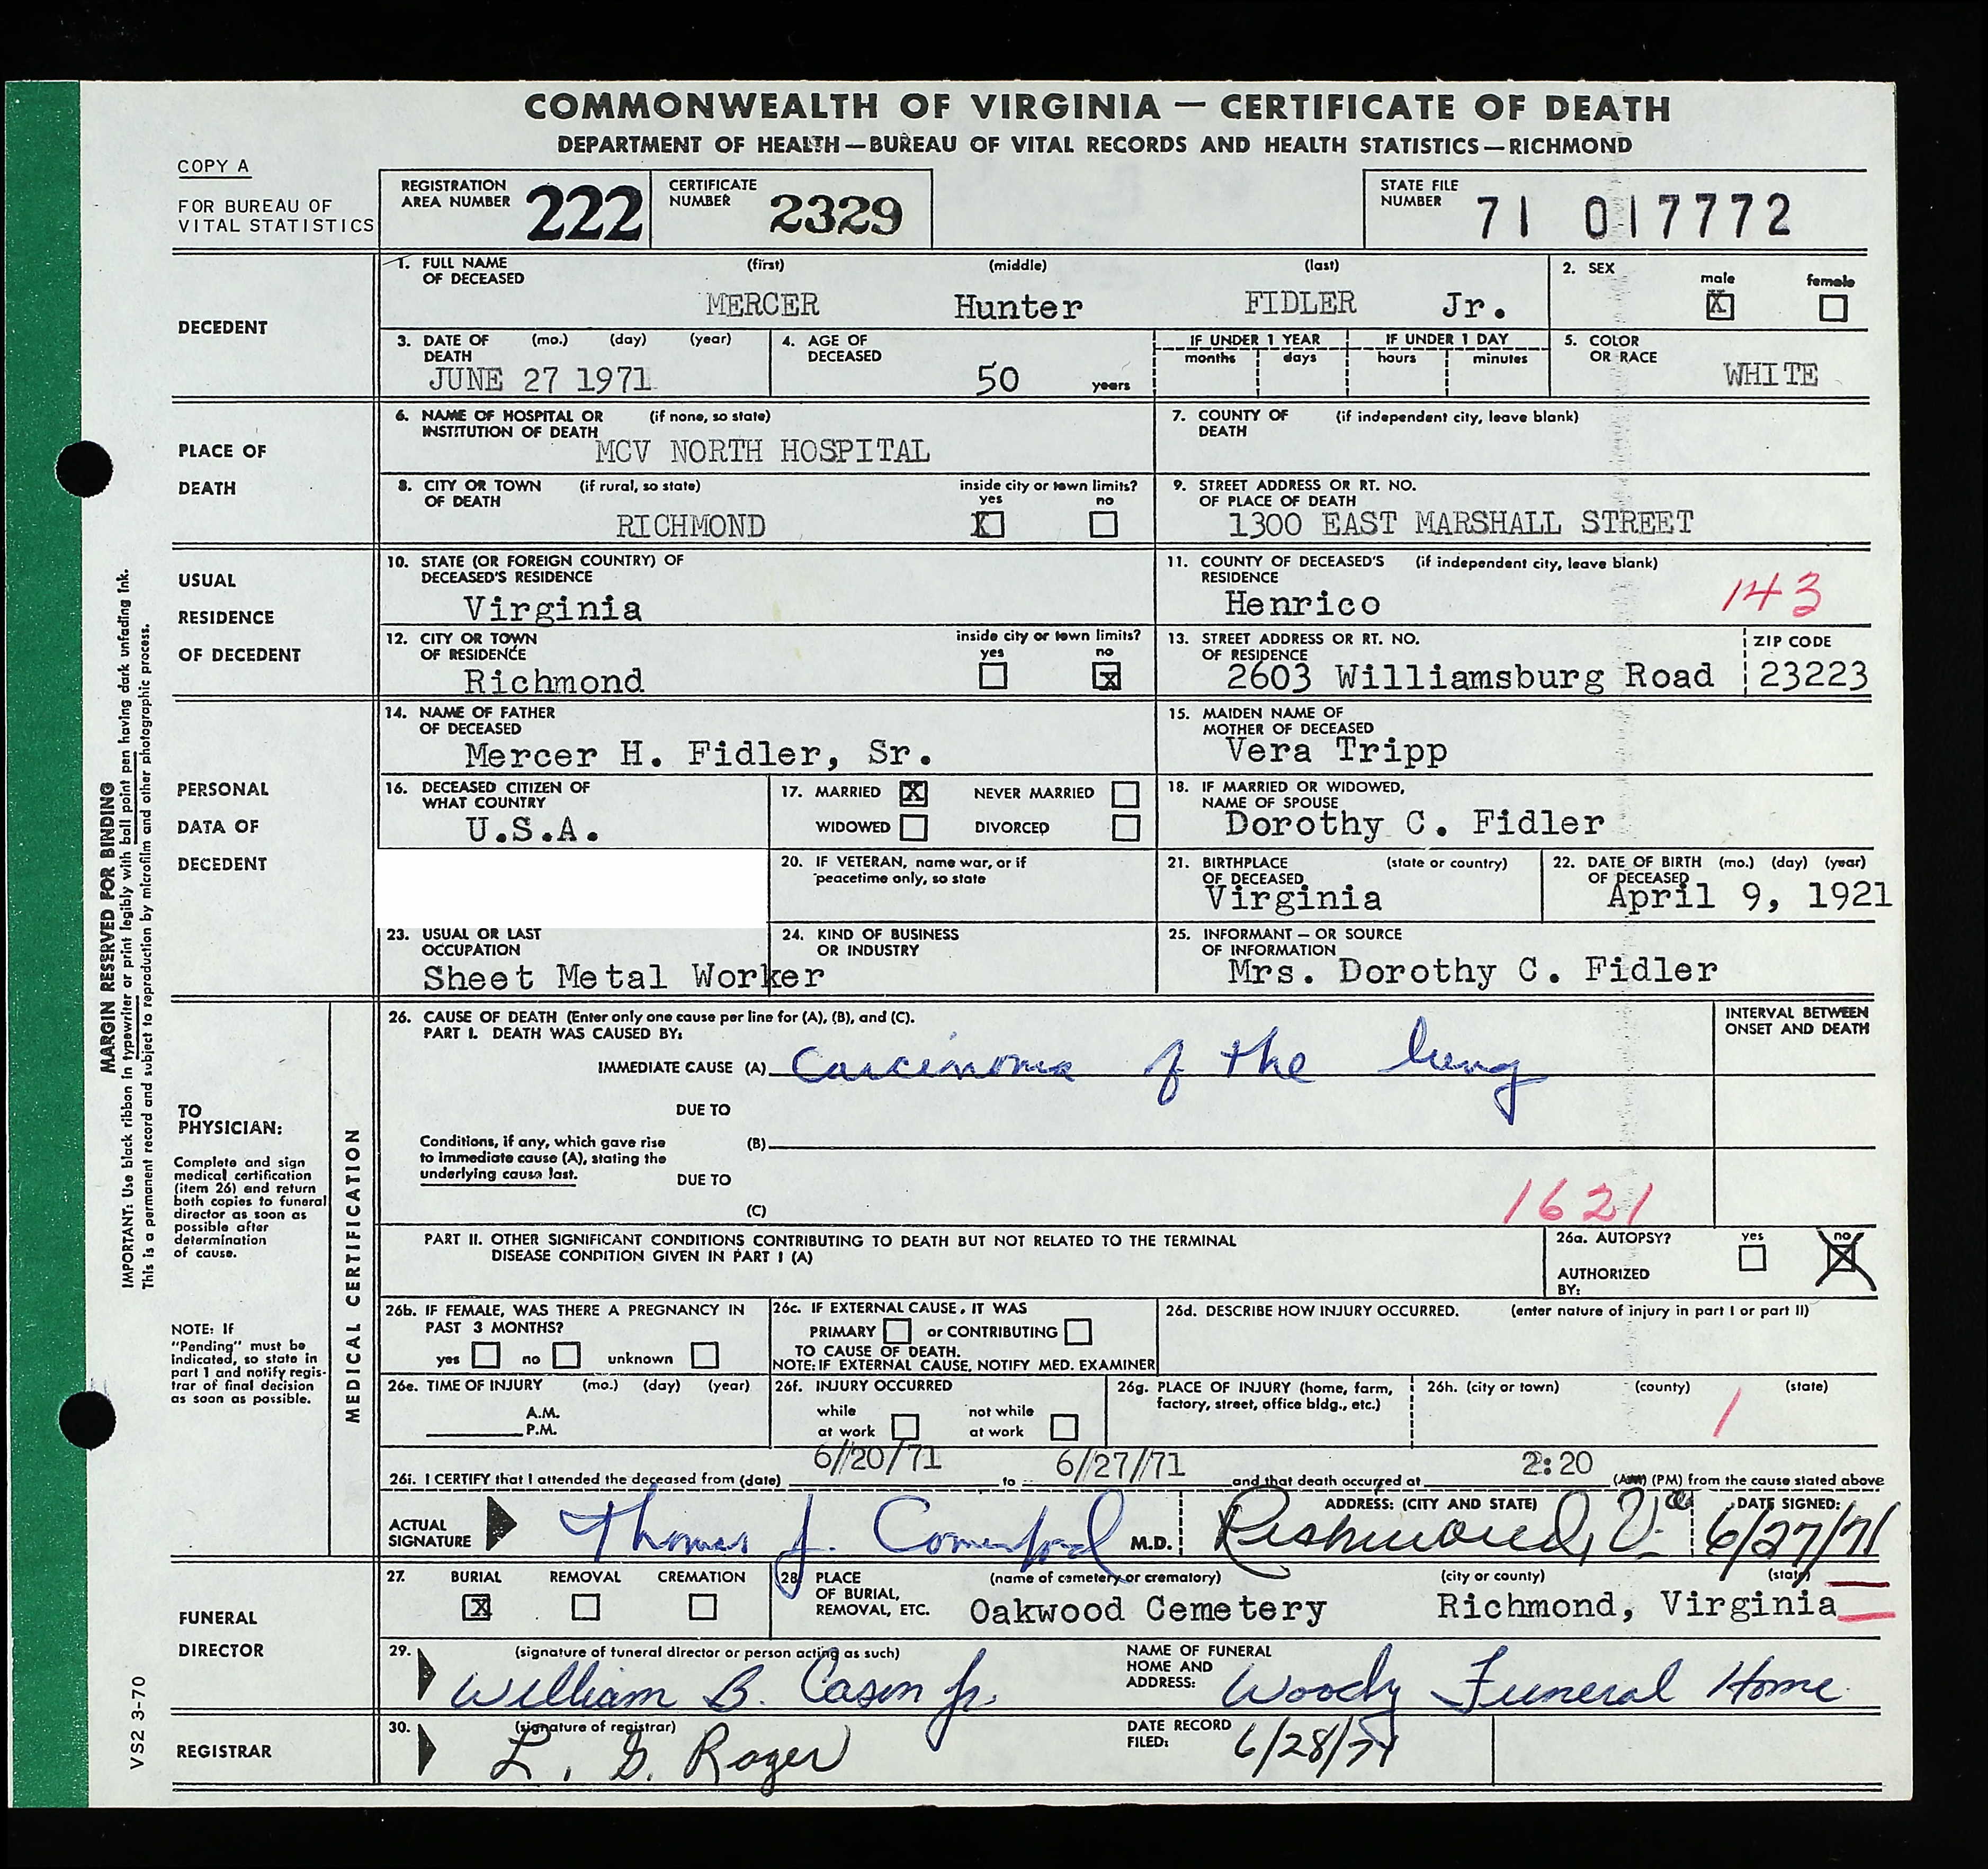 COMMONWEALTH OF VIRGINIA — CERTIFICATE OF DEATH
DEPARTMENT OF HEALTH—BUREAU OF VITAL RECORDS AND HEALTH STATISTICS—RICHMOND
COPY A
FOR BUREAU OF
VITAL STATISTICS
REGISTRATION
AREA NUMBER 222
CERTIFICATE
NUMBER 2329
STATE FILE
NUMBER 71 017772
DECEDENT
1. FULL NAME (first) (middle) (last)
OF DECEASED
MERCER Hunter FIDLER Jr.
2. SEX male female
X
3. DATE OF (mo.) (day) (year)
DEATH
JUNE 27 1971
4. AGE OF
DECEASED
50 years
IF UNDER 1 YEAR IF UNDER 1 DAY
months days hours minutes
5. COLOR
OR RACE
WHITE
PLACE OF
DEATH
6. NAME OF HOSPITAL OR (if none, so state)
INSTITUTION OF DEATH
MCV NORTH HOSPITAL
7. COUNTY OF (if independent city, leave blank)
DEATH
8. CITY OR TOWN (if rural, so state) inside city or town limits?
OF DEATH yes no
RICHMOND X
9. STREET ADDRESS OR RT. NO.
OF PLACE OF DEATH
1300 EAST MARSHALL STREET
USUAL
RESIDENCE
OF DECEDENT
10. STATE (OR FOREIGN COUNTRY) OF
DECEASED'S RESIDENCE
Virginia
11. COUNTY OF DECEASED'S (if independent city, leave blank)
RESIDENCE
Henrico 143
12. CITY OR TOWN inside city or town limits?
OF RESIDENCE yes no
Richmond x
13. STREET ADDRESS OR RT. NO. ZIP CODE
OF RESIDENCE
2603 Williamsburg Road 23223
PERSONAL
DATA OF
DECEDENT
14. NAME OF FATHER
OF DECEASED
Mercer H. Fidler, Sr.
15. MAIDEN NAME OF
MOTHER OF DECEASED
Vera Tripp
16. DECEASED CITIZEN OF
WHAT COUNTRY
U.S.A.
17. MARRIED X NEVER MARRIED
WIDOWED DIVORCED
18. IF MARRIED OR WIDOWED,
NAME OF SPOUSE
Dorothy C. Fidler
20. IF VETERAN, name war, or if
peacetime only, so state
21. BIRTHPLACE (state or country)
OF DECEASED
Virginia
22. DATE OF BIRTH (mo.) (day) (year)
OF DECEASED
April 9, 1921
23. USUAL OR LAST
OCCUPATION
Sheet Metal Worker
24. KIND OF BUSINESS
OR INDUSTRY
25. INFORMANT — OR SOURCE
OF INFORMATION
Mrs. Dorothy C. Fidler
MARGIN RESERVED FOR BINDING
IMPORTANT: Use black ribbon in typewriter or print legibly with ball point pen having dark unfading ink.
This is a permanent record and subject to reproduction by microfilm and other photographic process.
VS2 3-70
TO
PHYSICIAN:
Complete and sign
medical certification
(item 26) and return
both copies to funeral
director as soon as
possible after
determination
of cause.
NOTE: If
"Pending" must be
indicated, so state in
part 1 and notify regis-
trar of final decision
as soon as possible.
MEDICAL CERTIFICATION
26. CAUSE OF DEATH (Enter only one cause per line for (A), (B), and (C).
PART I. DEATH WAS CAUSED BY:
INTERVAL BETWEEN
ONSET AND DEATH
IMMEDIATE CAUSE (A) Carcinoma of the lung
DUE TO
Conditions, if any, which gave rise
to immediate cause (A), stating the
underlying cause last.
(B)
DUE TO
(C)
1621
PART II. OTHER SIGNIFICANT CONDITIONS CONTRIBUTING TO DEATH BUT NOT RELATED TO THE TERMINAL
DISEASE CONDITION GIVEN IN PART I (A)
26a. AUTOPSY? yes no
X
AUTHORIZED
BY:
26b. IF FEMALE, WAS THERE A PREGNANCY IN
PAST 3 MONTHS?
yes no unknown
26c. IF EXTERNAL CAUSE, IT WAS
PRIMARY or CONTRIBUTING
TO CAUSE OF DEATH.
NOTE: IF EXTERNAL CAUSE, NOTIFY MED. EXAMINER
26d. DESCRIBE HOW INJURY OCCURRED. (enter nature of injury in part I or part II)
26e. TIME OF INJURY (mo.) (day) (year)
A.M.
P.M.
26f. INJURY OCCURRED
while not while
at work at work
26g. PLACE OF INJURY (home, farm,
factory, street, office bldg., etc.)
26h. (city or town) (county) (state)
1
26i. I CERTIFY that I attended the deceased from (date) 6/20/71 to 6/27/71 and that death occurred at 2:20 (AM) (PM) from the cause stated above
ACTUAL
SIGNATURE Thomas J. Comerford M.D.
ADDRESS: (CITY AND STATE)
Richmond, Va
DATE SIGNED:
6/27/71
FUNERAL
DIRECTOR
27. BURIAL REMOVAL CREMATION
X
28. PLACE (name of cemetery or crematory) (city or county) (state)
OF BURIAL,
REMOVAL, ETC. Oakwood Cemetery Richmond, Virginia
29. (signature of funeral director or person acting as such)
William B. Cason Jr.
NAME OF FUNERAL
HOME AND
ADDRESS: Woody Funeral Home
REGISTRAR
30. (signature of registrar)
L. G. Roger
DATE RECORD
FILED: 6/28/71